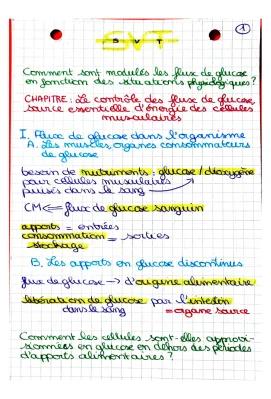 SVT
1
Comment sont modulés les flux de glucose
en fonction des situations physiologiques ?
CHAPITRE : Le contrôle des flux de glucose,
source essentielle d'énergie des cellules
musculaires
I. Flux de glucose dans l'organisme
A. Les muscles, organes consommateurs
de glucose
besoin de nutriments : glucose/dioxygène
pour cellules musculaires
puisés dans le sang
CM ⇐ flux de glucose sanguin
apports = entrées
consommation = sorties
stockage
B. Les apports en glucose discontinus
flux de glucose → d'origine alimentaire
libération de glucose par l'intestin
dans le sang = organe source
Comment les cellules sont-elles approvi-
sionnées en glucose en dehors des périodes
d'apports alimentaires ?